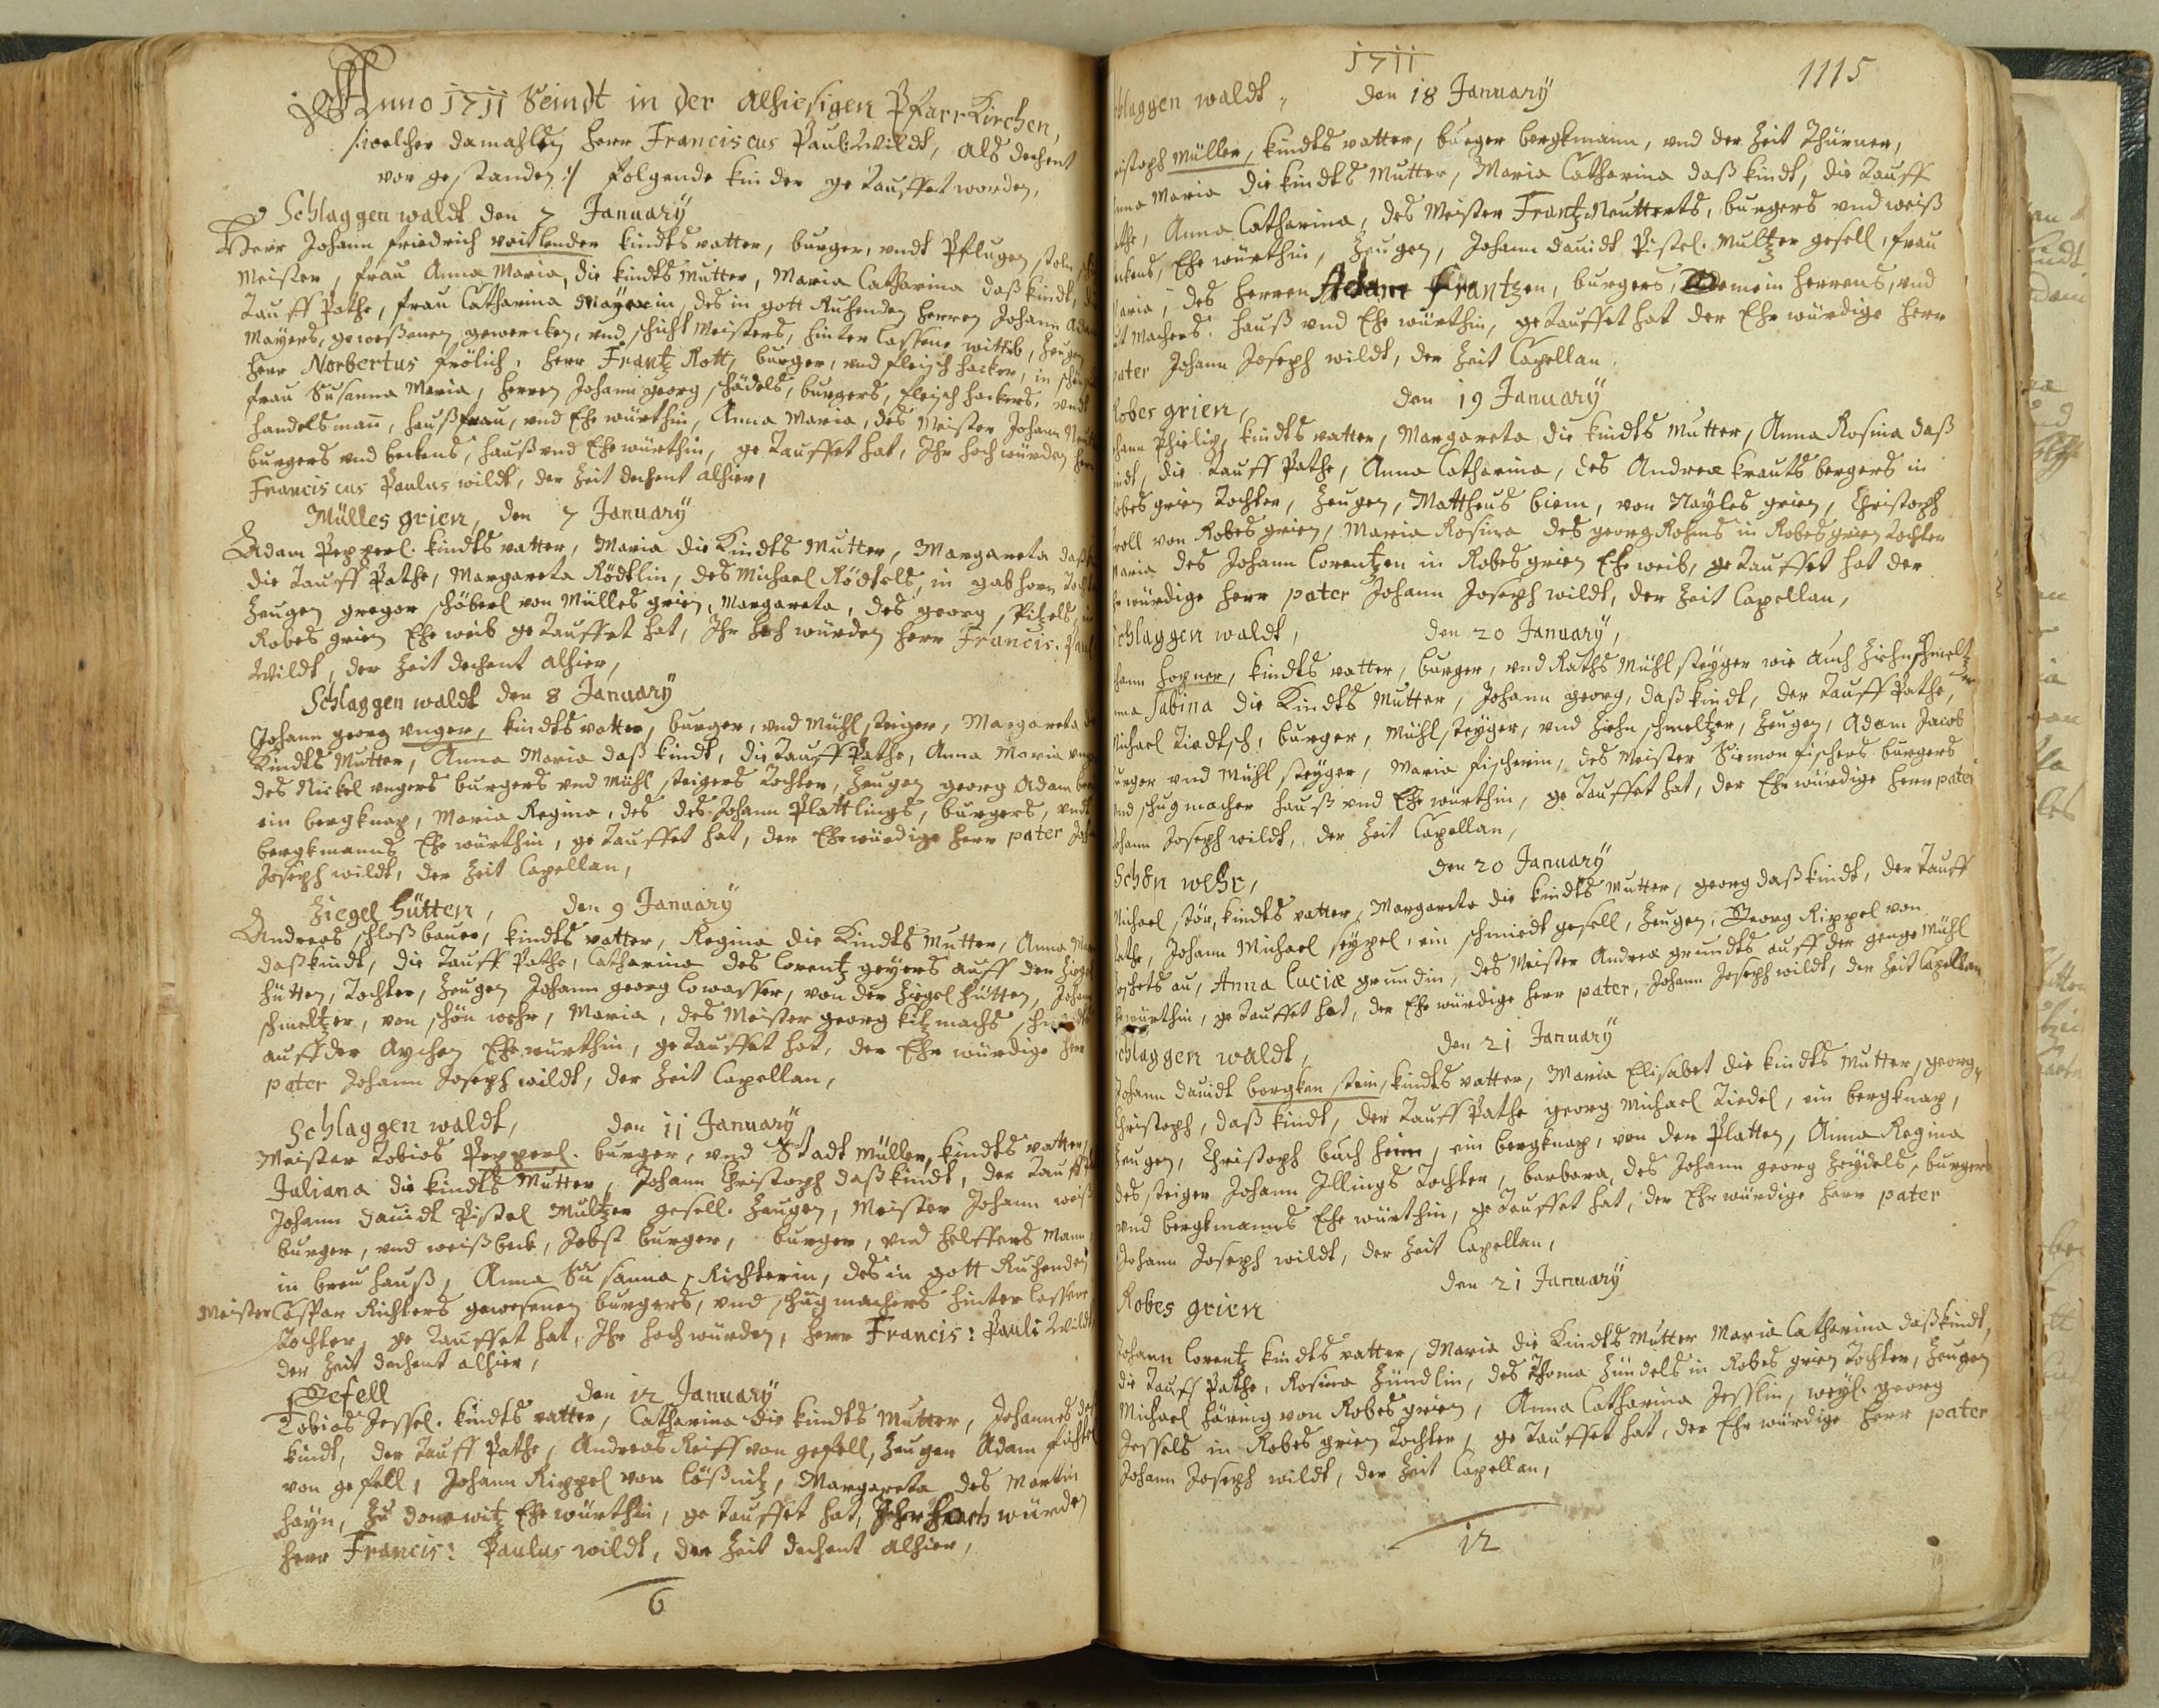 Anno 1711 Seindt in der alhiesigen PfarrKirchen,
/:welcher damahlen herr Franciscus Paul: Wildt, als dechent
vor gestanden:/ folgende kinder getauffet worden,
Schlaggenwaldt den 7 January
Herr Johann friedrich voitlender kindtsvatter, burger, undt Pflugen stoln
Meister, frau Anna Maria, die kindts Mutter, Maria Catharina daß kindt,
Tauff Pathe, frau Catharina Mayerin, des in gott Ruhenden herren Johann Adam
Mayers, geweßenen gewercken, und schicht Meisters, hinter lassene wittib, Zeugen
herr Norbertus frölich, herr Frantz Rott, burger, und fleisch hacker, in
frau Susanna Maria, herren Johann georg schödels, burgers, fleisch hackers, undt
handelsmañ, haußfrau, und Ehe würthin, Anna Maria, des Meister Johann
burgers und beckens, hauß und Ehe würthin, getauffet hat, Ihr hoch würden herr
Franciscus Paulus wildt, der Zeit dechent alhier,
Mülles grien, den 7 January
Adam Pepperl. kindts vatter, Maria die Kindts Mutter, Margareta daß
die Tauff Pathe, Margareta Rödtlin, des Michael Rödtels, in gabhorn Tochter
Zeugen gregor schöberl von Mülles grien, Margareta, des georg Pitzels, in
Robes grien Ehe weib getauffet hat, Ihr hoch würden herr Francis. Paul
Wildt, der Zeit dechent alhier,
Schlaggen waldt den 8 January
Johann georg unger, kindts vatter, burger, und Mühl steiger, Margareta die
Kindts Mutter, Anna Maria daß kindt, die Tauff Pathe, Anna Maria
des Nickel ungers burgers und Mühl steigers Tochter, Zeugen georg Adam
ein bergknap, Maria Regina, des des Johann Plattlings, burgers, undt
bergkmanns Ehe würthin, getauffet hat, der Ehrwürdige herr pater Joh
Joseph wildt, der Zeit Capellan,
Ziegel hütten, den 9 January
Andreas schloß bauer, kindts vatter, Regina die Kindts Mutter, Anna
daß kindt, die Tauff Pathe, Catharina des Lorentz geyers auff der Ziegel
hütten, Tochter, Zeugen Johann georg Lowasser, von der Ziegel hütten, Johann
schmeltzer, von schön wehr, Maria, des Meister georg kitzmachs
auff der Aychen Ehe würthin, getauffet hat, der Ehr würdige herr
pater Johann Joseph wildt, der Zeit Capellan,
Schlaggen waldt, den 11 January
Meister Tobias Pepperl. burger, und Stadt Müller, kindts vatter,
Juliana die kindts Mutter, Johann Christoph daß kindt, der Tauff
Johann Dauidt Pistel Multzer gesell. Zeugen, Meister Johann weiß
burger, und weißbeck, Jobst burger, burger, und helffers Mann,
in breu hauß, Anna Susanna, Richterin, des in gott Ruhenden
Meister Caspar Richters gewesenen burgers, und schugmachers hinter lassene
Tochter, getauffet hat, Ihr hoch würden, herr Francis: Pauli Wildt
der Zeit dechent alhier,
Gefell den 12 January
Tobias Jessel. kindts vatter, Catharina die kindts Mutter, Johannes daß
kindt, der Tauff Pathe, Andreas Reiff von gefell, Zeugen Adam
von gefell, Johann Rippel von Lößnitz, Margareta des Martin
hayn, zu donawitz Ehe würthin, getauffet hat, Ihr hoch würden
herr Francis: Paulus wildt, der Zeit dechent alhier,
6
1711
1115
hlaggen waldt, den 18 January
istoph Müller, kindts vatter, burger bergkmann, und der Zeit Thürner,
nna Maria die kindts Mutter, Maria Catharina daß kindt, die Tauff
athe, Anna Catharina, des Meister Frantz Neutterts, burgers und weiß
ckens, Ehe würthin, Zeugen, Johann dauidt Pistel. Multzer gesell, frau
aria, des herren Adam Frantzen, burgers, gemein herrens, und
ut machers. hauß und Ehe würthin, getauffet hat der Ehr würdige herr
pater Johann Joseph wildt, der Zeit Capellan,
Robes grien, den 19 January
hann Philip, kindts vatter, Margareta die kindts Mutter, Anna Rosina daß
indt, die Tauff Pathe, Anna Catharina, des Andreæ krautsbergers in
obes grien Tochter, Zeugen, Mattheus biem, von Nayles grien, Christoph
roll von Robes grien, Maria Rosina des georg Rohms in Robes grien Tochter
Maria des Johann Lorentzen in Robes grien Ehe weib, getauffet hat der
hrwürdige herr pater Johann Joseph wildt, der Zeit Capellan,
Schlaggen waldt, den 20 January,
hann hopner, kindts vatter, burger, und Raths Mühl steyger wie auch Ziehnschmeltzer
nna Sabina die Kindts Mutter, Johann georg, daß kindt, der Tauff Pathe,
Michael Tiedtsch, burger, Mühlsteyger, und Ziehn schmeltzer, Zeugen, Adam Jacob
burger und Mühl steyger, Maria fischerin, des Meister Siemon fischers burgers
und schugmacher hauß und Ehe würthin, getauffet hat, der Ehrwürdige herr pater
Johann Joseph wildt, der Zeit Capellan,
Schön wehr, den 20 January
Michael stör, kindts vatter, Margareta die kindts Mutter, georg daß kindt, der Tauff
Pathe, Johann Michael seypel, ein schmiedt gesell, Zeugen, Georg Rippel von
oschets au, Anna Luciæ grundin, des Meister Andreæ grundts auff der genge Mühl
hewürthin, getauffet hat, der Ehr würdige herr pater, Johann Joseph wildt, der Zeit Capellan
Schlaggen waldt, den 21 January
Johann dauidt borgkenstein, kindts vatter, Maria Elisabet die kindts Mutter, georg
Christoph, daß kindt, der Tauff Pathe georg Michael Tiedel, ein bergknap,
Zeugen, Christoph buch heim, ein bergknap, von der Platten, Anna Regina
des steiger Johann Illings Tochter, barbara, des Johann georg Zeydels, burgers
und bergkmanns Ehe würthin, getauffet hat, der Ehr würdige herr pater
Johann Joseph wildt, der Zeit Capellan,
den 21 January
Robes grien
Johann Lorentz kindts vatter, Maria die Kindts Mutter Maria Catharina daß kindt,
die Tauff Pathe, Rosina Zündlin, des Thoma Zündels in Robes grien Tochter, Zeugen
Michael häring von Robes grien, Anna Catharina Jesslin, weyl. georg
Jessels in Robes grien Tochter, getauffet hat, der Ehr würdige herr pater
Johann Joseph wildt, der Zeit Capellan,
12